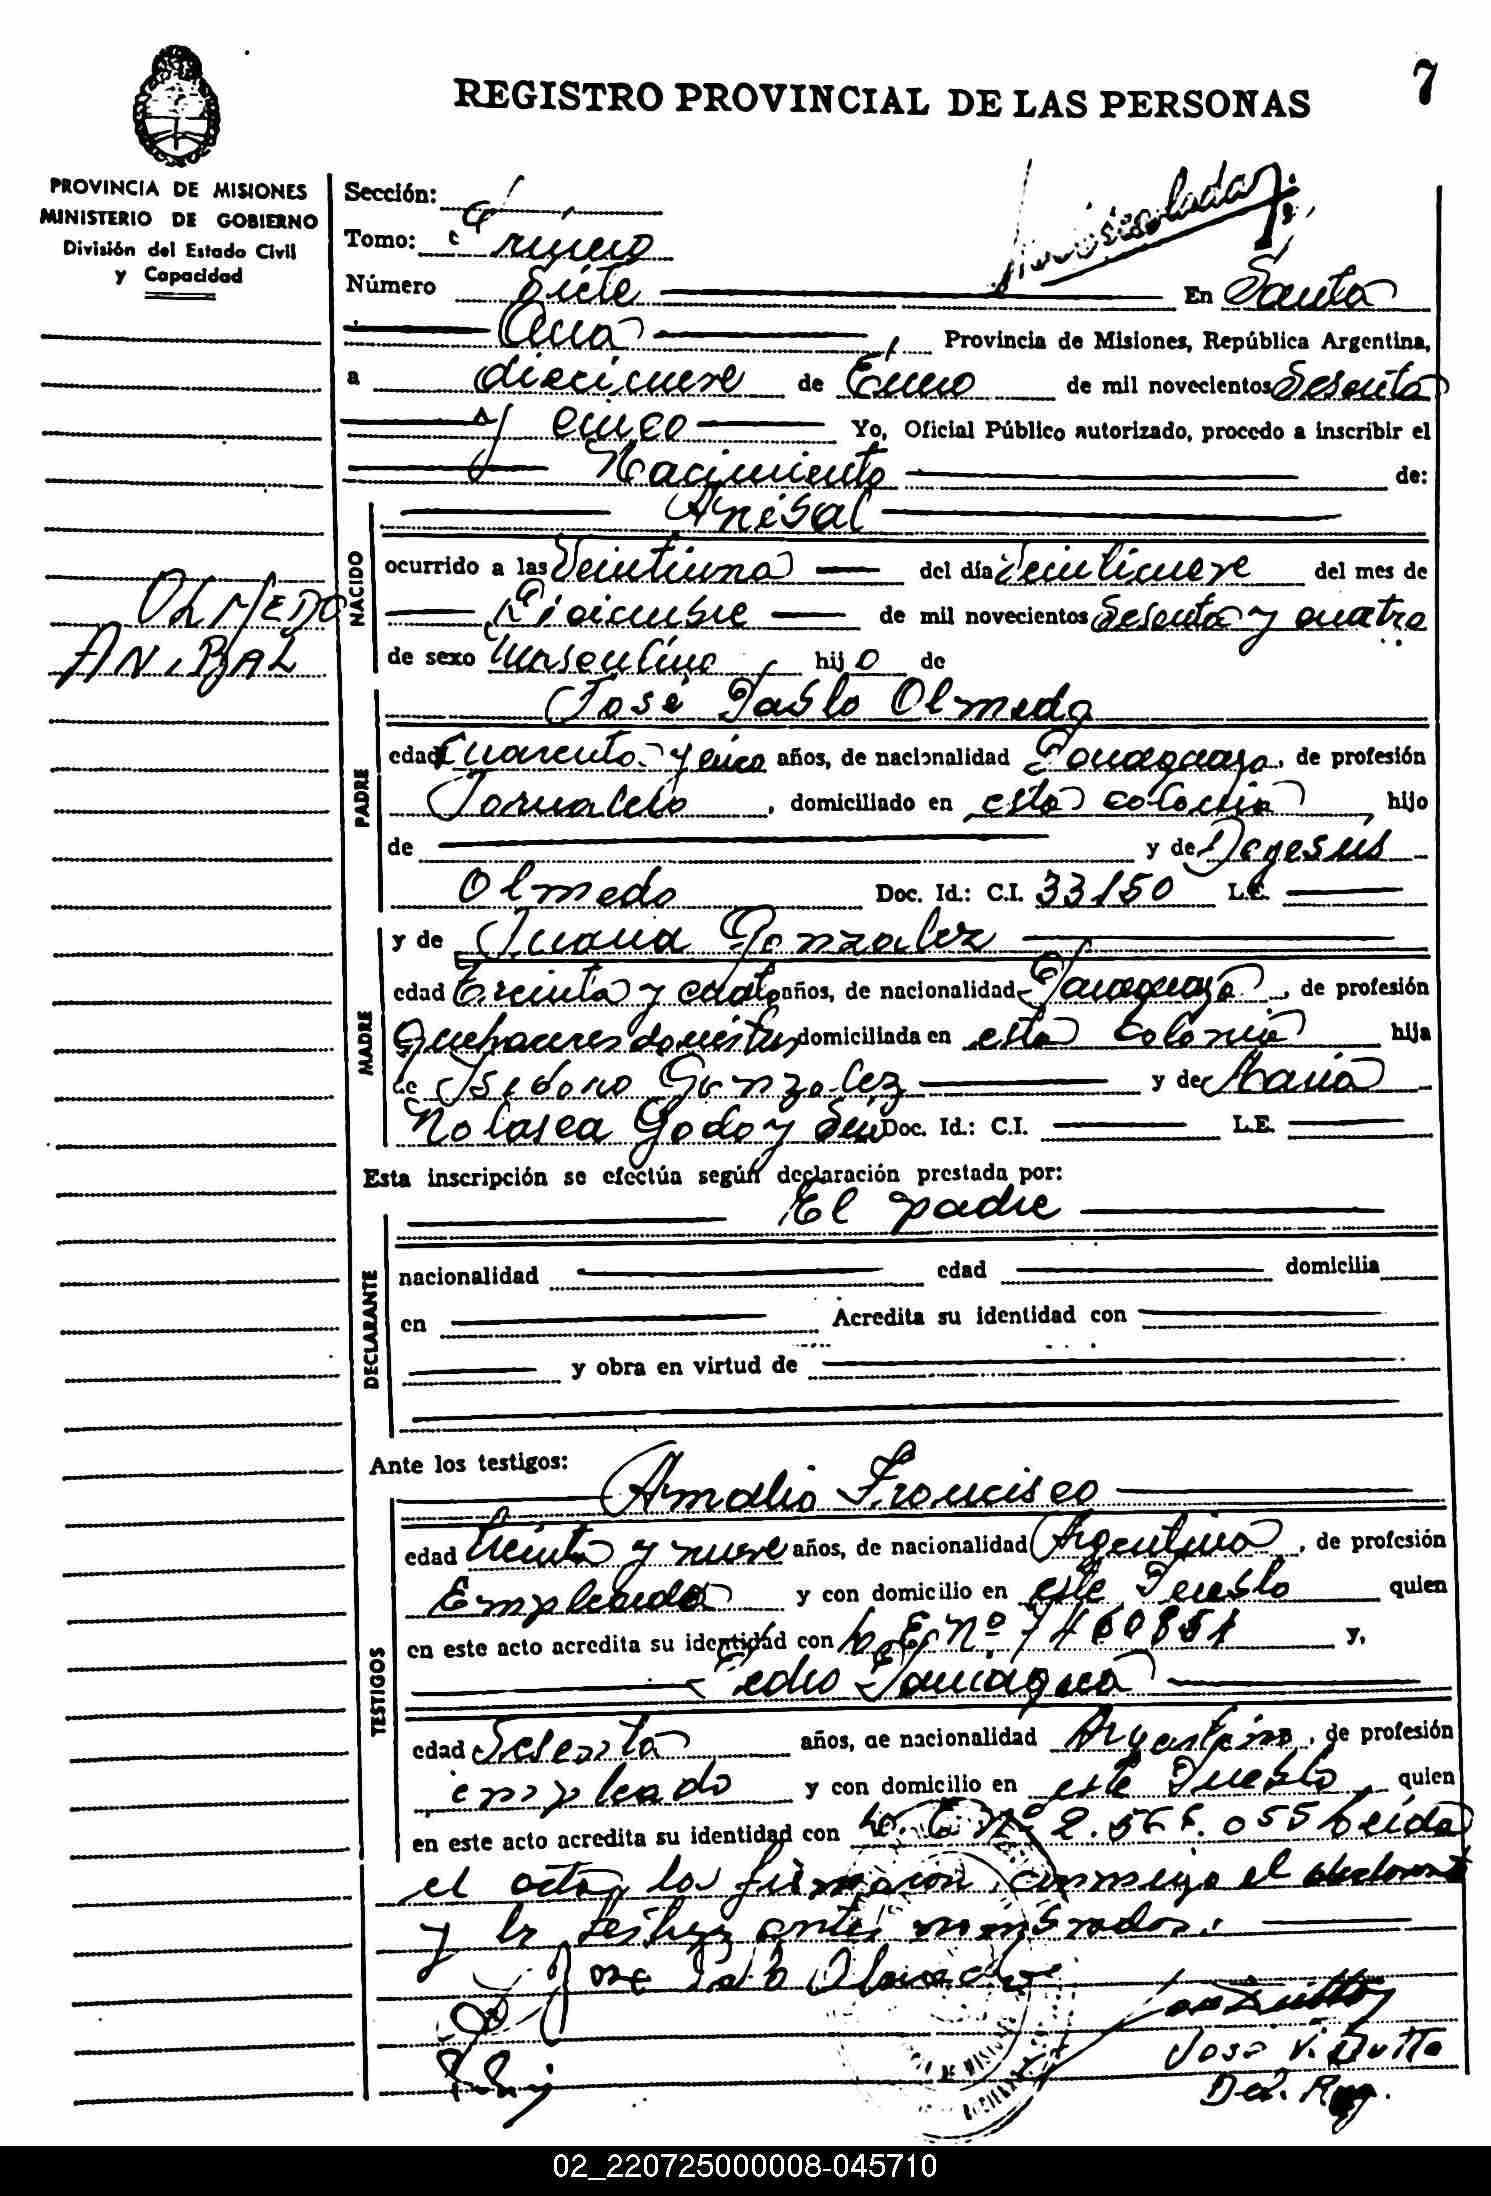 REGISTRO PROVINCIAL DE LAS PERSONAS
7
PROVINCIA DE MISIONES
MINISTERIO DE GOBIERNO
División del Estado Civil
y Capacidad
Sección:
Tomo: Primero
Número Siete En Santa
Ana Provincia de Misiones, República Argentina,
a diecinueve de Enero de mil novecientos Sesenta
y cinco Yo, Oficial Público autorizado, procedo a inscribir el
Nacimiento de:
NACIDO
Anibal
ocurrido a las Veintiuna del día Veintinueve del mes de
Diciembre de mil novecientos Sesenta y cuatro
de sexo Masculino hijo de
OLMEDO
ANIBAL
PADRE
José Pablo Olmedo
edad Cuarenta y cinco años, de nacionalidad Paraguaya, de profesión
Jornalero, domiciliado en esta colonia hijo
de y de Dejesús
Olmedo Doc. Id.: C.I. 33150 L.E.
MADRE
y de Juana Gonzalez
edad Treinta y cuatro años, de nacionalidad Paraguaya, de profesión
Quehaceres domesticos domiciliada en esta colonia hija
de Isidoro Gonzalez y de Maria
Nolasca Godoy Sin Doc. Id.: C.I. L.E.
Esta inscripción se efectúa según declaración prestada por:
DECLARANTE
El padre
nacionalidad edad domicilia
en Acredita su identidad con
y obra en virtud de
Ante los testigos:
TESTIGOS
Amalio Francisco
edad treinta y nueve años, de nacionalidad Argentina, de profesión
Empleado y con domicilio en este Pueblo quien
en este acto acredita su identidad con L. E. Nº 7460851 y,
Pedro
edad Sesenta años, de nacionalidad Argentina, de profesión
empleado y con domicilio en este Pueblo, quien
en este acto acredita su identidad con Nº 2.565.055 Leída
el acta, la firmaron conmigo el declarante
y los testigos antes nombrados.
Jose Pablo Olmedo
Jose V. Dutto
Del. Reg.
02_220725000008-045710